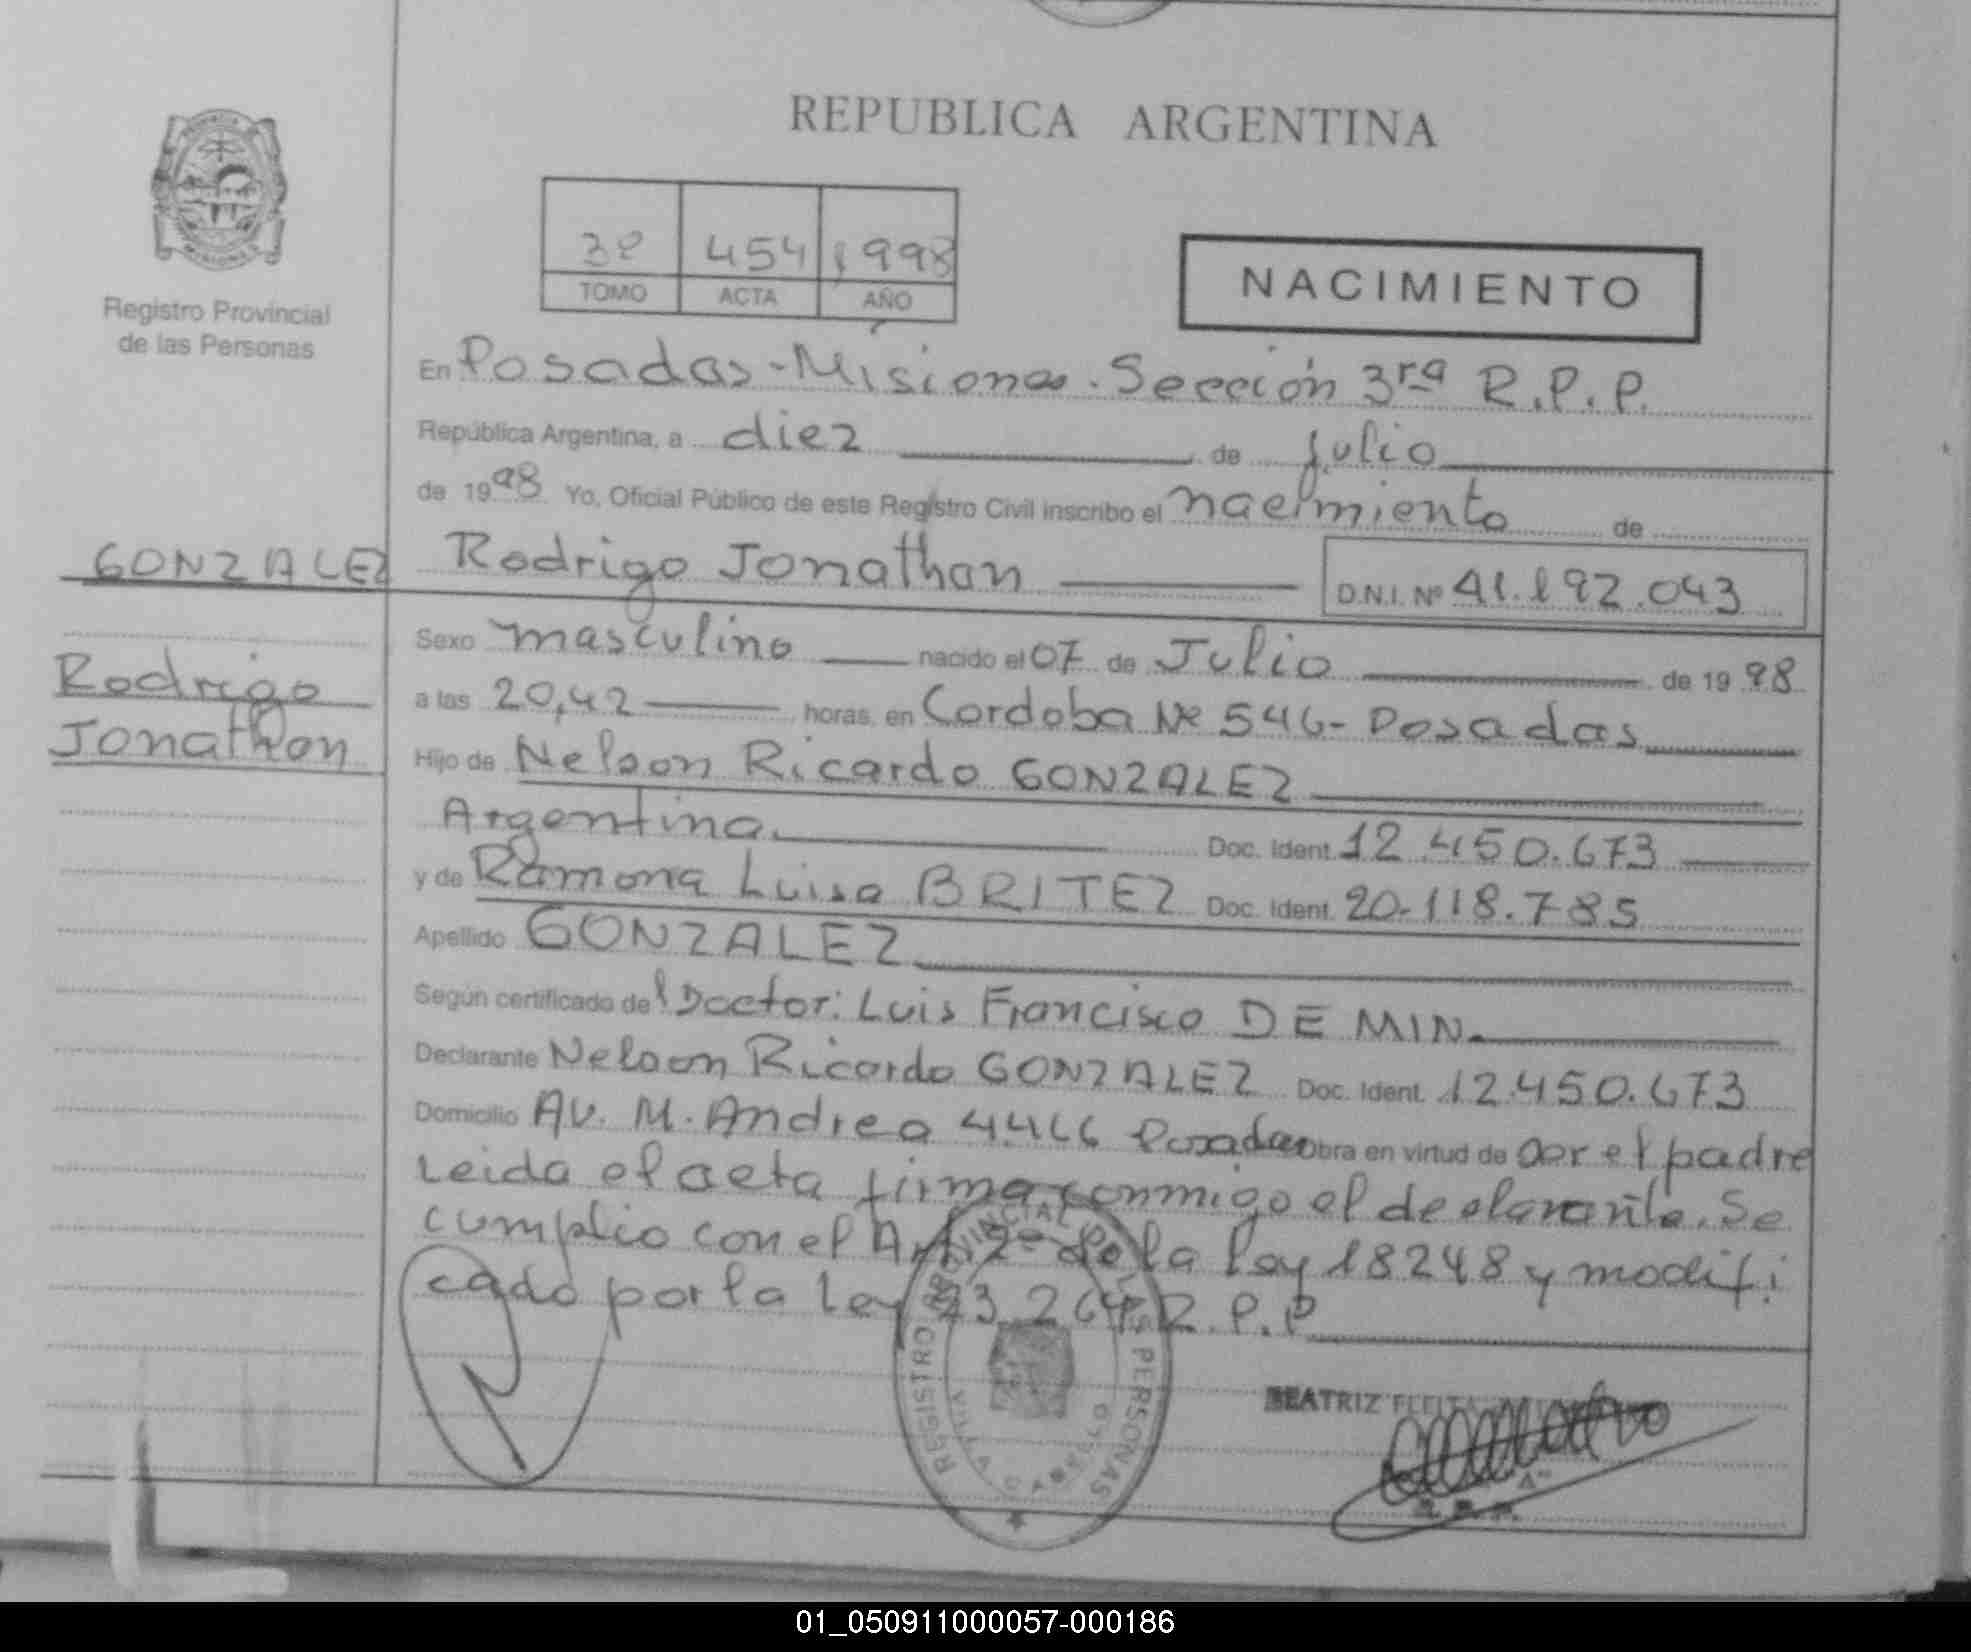 REPUBLICA ARGENTINA
PROVINCIA
MISIONES
Registro Provincial
de las Personas
3º 454 1998
TOMO ACTA AÑO
NACIMIENTO
En Posadas-Misiones. Sección 3ra R.P.P.
República Argentina, a diez de julio
de 1998 Yo, Oficial Público de este Registro Civil inscribo el nacimiento de
GONZALEZ Rodrigo Jonathan D.N.I. Nº 41.192.043
Rodrigo
Jonathan
Sexo masculino nacido el 07 de Julio de 1998
a las 20,42 horas. en Cordoba Nº 546- Posadas
Hijo de Nelson Ricardo GONZALEZ
Argentina. Doc. Ident. 12.450.673
y de Ramona Luisa BRITEZ Doc. Ident. 20.118.785
Apellido GONZALEZ
Según certificado del Doctor: Luis Francisco DE MIN.
Declarante Nelson Ricardo GONZALEZ Doc. Ident. 12.450.673
Domicilio Av. M. Andrea 4466 Posadas obra en virtud de ser el padre
Leida el acta firma conmigo el declarante. Se
cumplio con el Art 2º de la Ley 18248 y modifi
cado por la Ley 23.264 R.P.P
REGISTRO PROVINCIAL DE LAS PERSONAS
VILLA CABELLO
BEATRIZ FLEITA
01_050911000057-000186